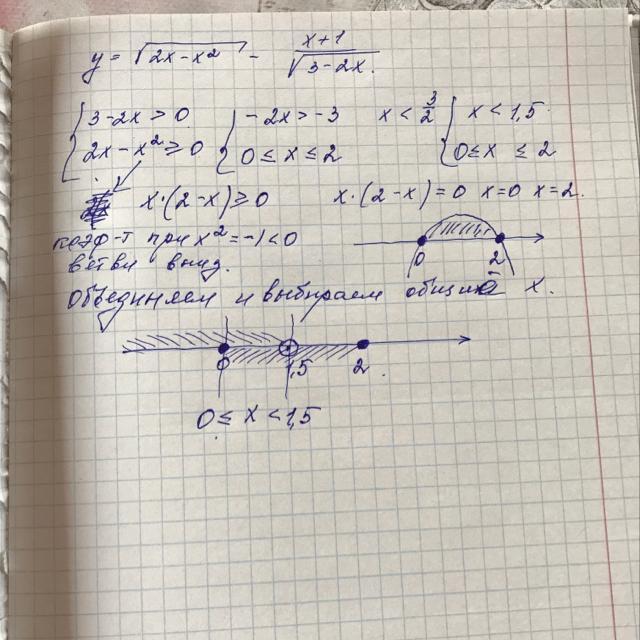 y = √(2x-x²) - (x+1)/√(3-2x).
{ 3-2x > 0 { -2x > -3 x < 3/2 { x < 1,5
{ 2x-x² ≥ 0 { 0 ≤ x ≤ 2 { 0 ≤ x ≤ 2
x·(2-x) ≥ 0 x·(2-x) = 0 x=0 x=2.
коэф-т при x² = -1 < 0
ветви вниз.
0 2
Объединяем и выбираем общий x.
0 1,5 2
0 ≤ x < 1,5